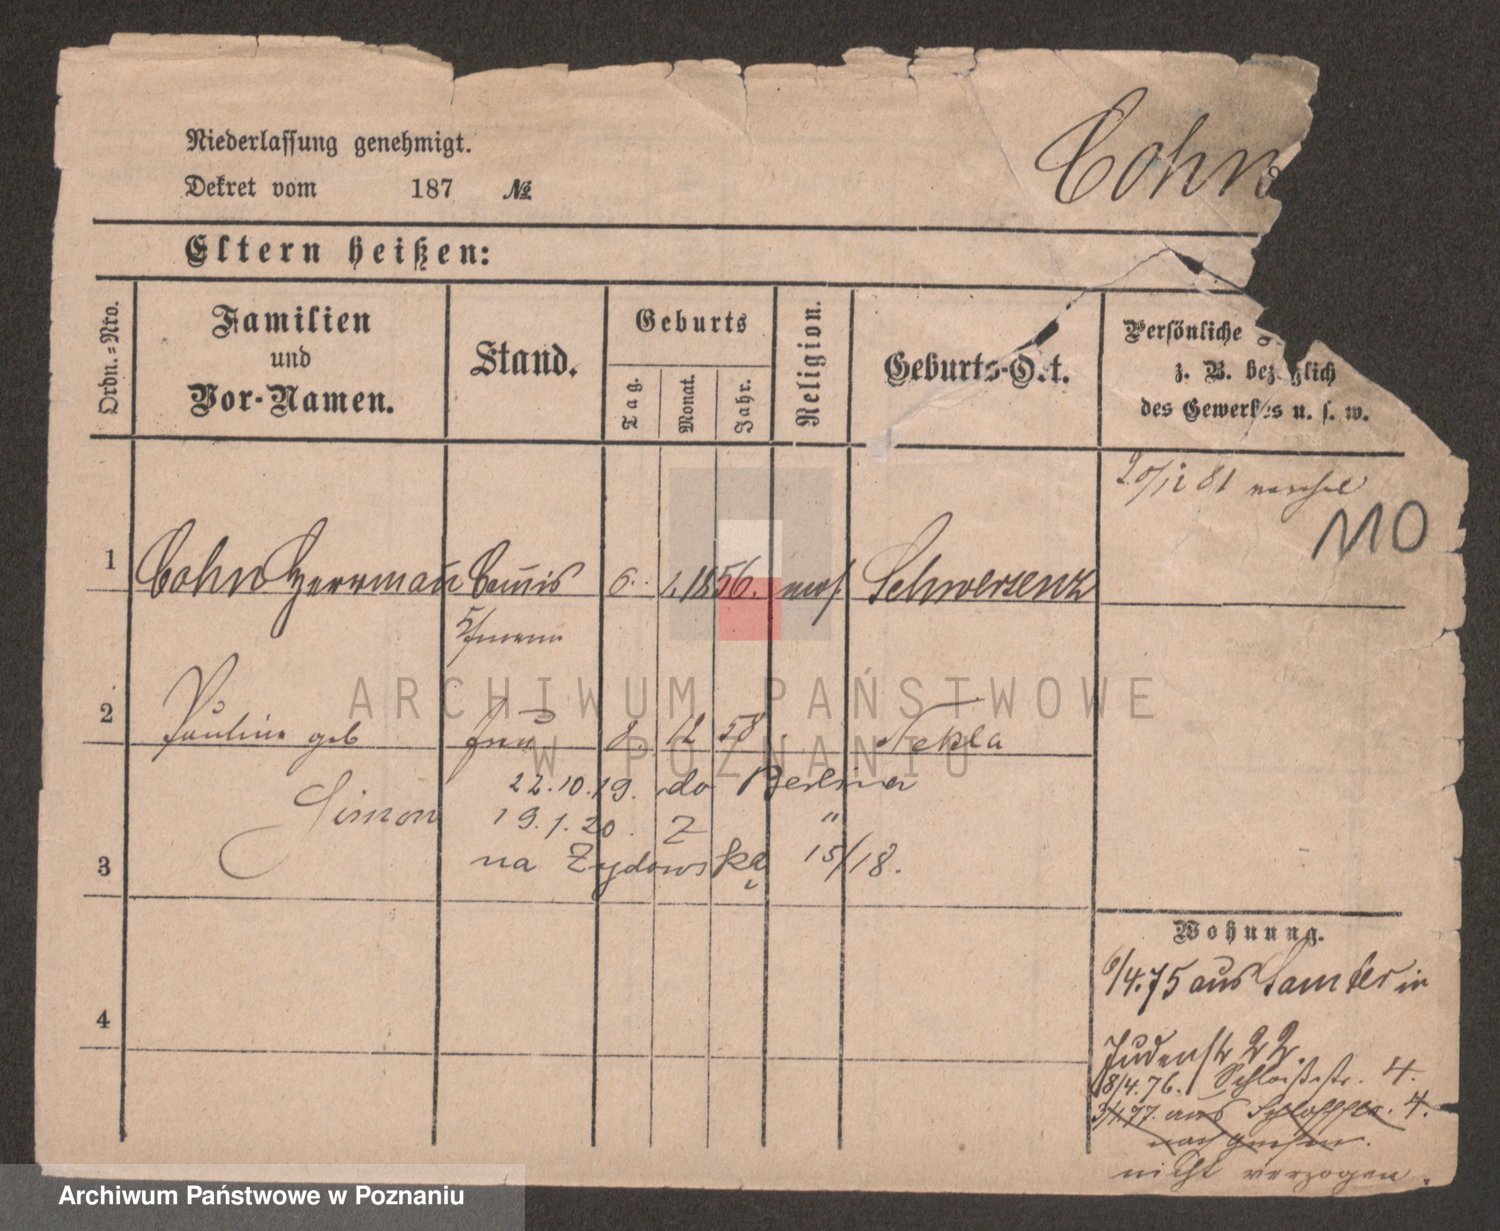 Niederlassung genehmigt.
Dekret vom 187 №
Cohn
Eltern heißen:
Ordn.=Nro.
Familien
und
Vor-Namen.
Stand.
Geburts
Tag.
Monat.
Jahr.
Religion.
Geburts-Ort.
Persönliche
z. B. bezüglich
des Gewerbes u. s. w.
20/12 81
110
1 Cohn Herrmann Comis 6. 1. 1856. mos. Schwersenz
2 Pauline geb Frau 8. 12 58 Nekla
Simon
22.10.19. do Berlina
19.1.20. Z "
3 na Żydowską 15/18.
4
Wohnung.
6/4.75 aus Samter in
Judenstr 22.
8/4.76. Schloßstr. 4.
3/4.77. aus Schloßstr. 4.
nach Gnesen.
nicht verzogen.
ARCHIWUM PAŃSTWOWE
W POZNANIU
Archiwum Państwowe w Poznaniu